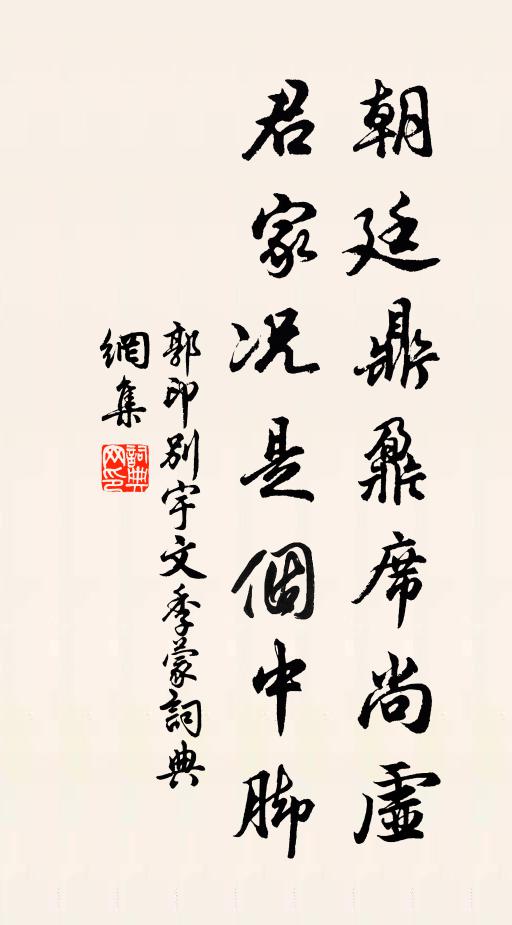 朝廷鼎鼐席尚虛
君家況是個中脚
郭印別宇文季蒙詞典
網集
詞典
网印